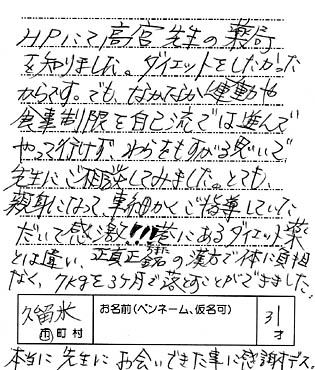 HPにて高宮先生の薬局
を知りました。ダイエットをしたかった
からです。でも、なかなか運動や
食事制限を自己流では進んで
やって行けず、わらをもすがる思いで
先生にご相談してみました。とても、
親身になって事細かくご指導していた
だいて感激!!!巷にあるダイエット薬
とは違い、正真正銘の漢方で体に負担
なく、7kgを3ヶ月で落とすことができました。
久留米
市町村
お名前(ペンネーム、仮名可)
31
才
本当に先生にお会いできた事に感謝デス。